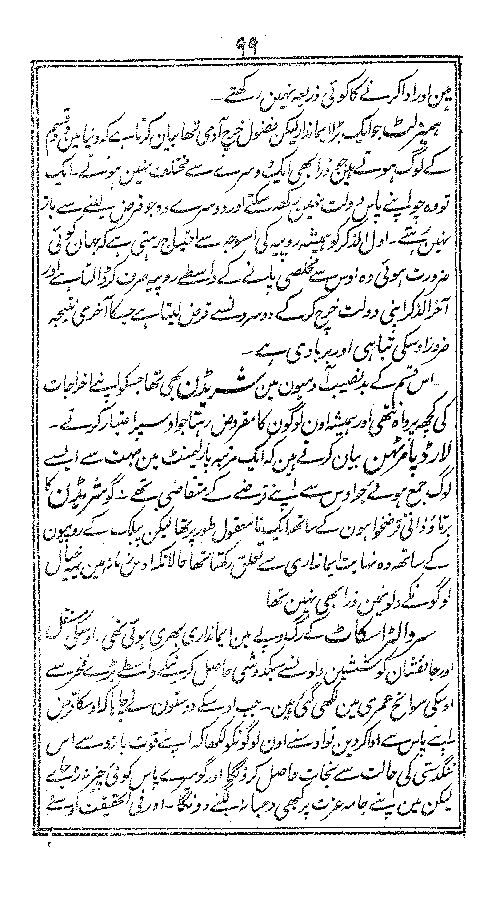 ۹۹
مین اور ادا کرنے کا کوئی ذریعہ نہین رکھتے۔
ہیزلٹ جو ایک بڑا ایماندار لیکن فضول خرچ آدمی تھا بیان کرتا ہے کہ دنیا مین دو قسم
کے لوگ ہوتے ہین جو ذرا بھی ایک دوسرے سے مختلف نہین ہوتے۔ ایک
تو وہ جو اپنے پاس دولت نہین رکھ سکتے اور دوسرے وہ جو قرض لینے سے باز
نہین رہتے۔ اول الذکر کو ہمیشہ روپیہ کی اسوجہ سے احتیاج رہتی ہے کہ جہان کوئی
ضرورت ہوئی وہ اوس سے مخلصی پانے کے واسطے روپیہ صرف کر ڈالتا ہے اور
آخر الذکر اپنی دولت خرچ کر کے دوسرونسے قرض لیتا ہے جسکا آخری نتیجہ
ضرور اوسکی تباہی اور بربادی ہے۔
اس قسم کے بدنصیب آدمیون مین شریڈن بھی تھا جسکو اپنے اخراجات
کی کچھ پرواہ نتھی اور ہمیشہ اون لوگون کا مقروض رہتا جو اوسپر اعتبار کرتے۔
لارڈ پامرٹین بیان کرتے ہین کہ ایک مرتبہ پارلیمنٹ مین بہت سے ایسے
لوگ جمع ہوئے جو اوس سے اپنے قرضے کے متقاضی تھے۔ گو شریڈن کا
برتاؤ ذاتی قرضخواہون کے ساتھ ایک نامعقول طور پر تھا لیکن پبلک کے روپیون
کے ساتھ وہ نہایت ایمانداری سے تعلق رکھتا تھا حالانکہ اوس زمانہ مین یہ خیال
لوگونکے دلونمین ذرا بھی نہین تھا
سر والٹر اسکاٹ کے رگ و پے مین ایمانداری بھری ہوئی تھی۔ اوسکی مستقل
اور جانفشان کوششین داد نسے سبکدوشی حاصل کرنیکے واسطے بڑے فخر سے
اوسکی سوانح عمری مین لکھی گئی ہین۔ جب اوسکے دوستون نے چاہا کہ اوسکا قرض
اپنے پاس سے ادا کردین تو اوسنے اون لوگونکو لکھا کہ اپنے قوت بازو سے اس
تنگدستی کی حالت سے نجات حاصل کرونگا اور گو میرے پاس کوئی چیز نہ رہجاے
لیکن مین اپنے جامہ عزت پر کبھی دھبا نہ لگنے دونگا۔ اور فی الحقیقت اوسنے